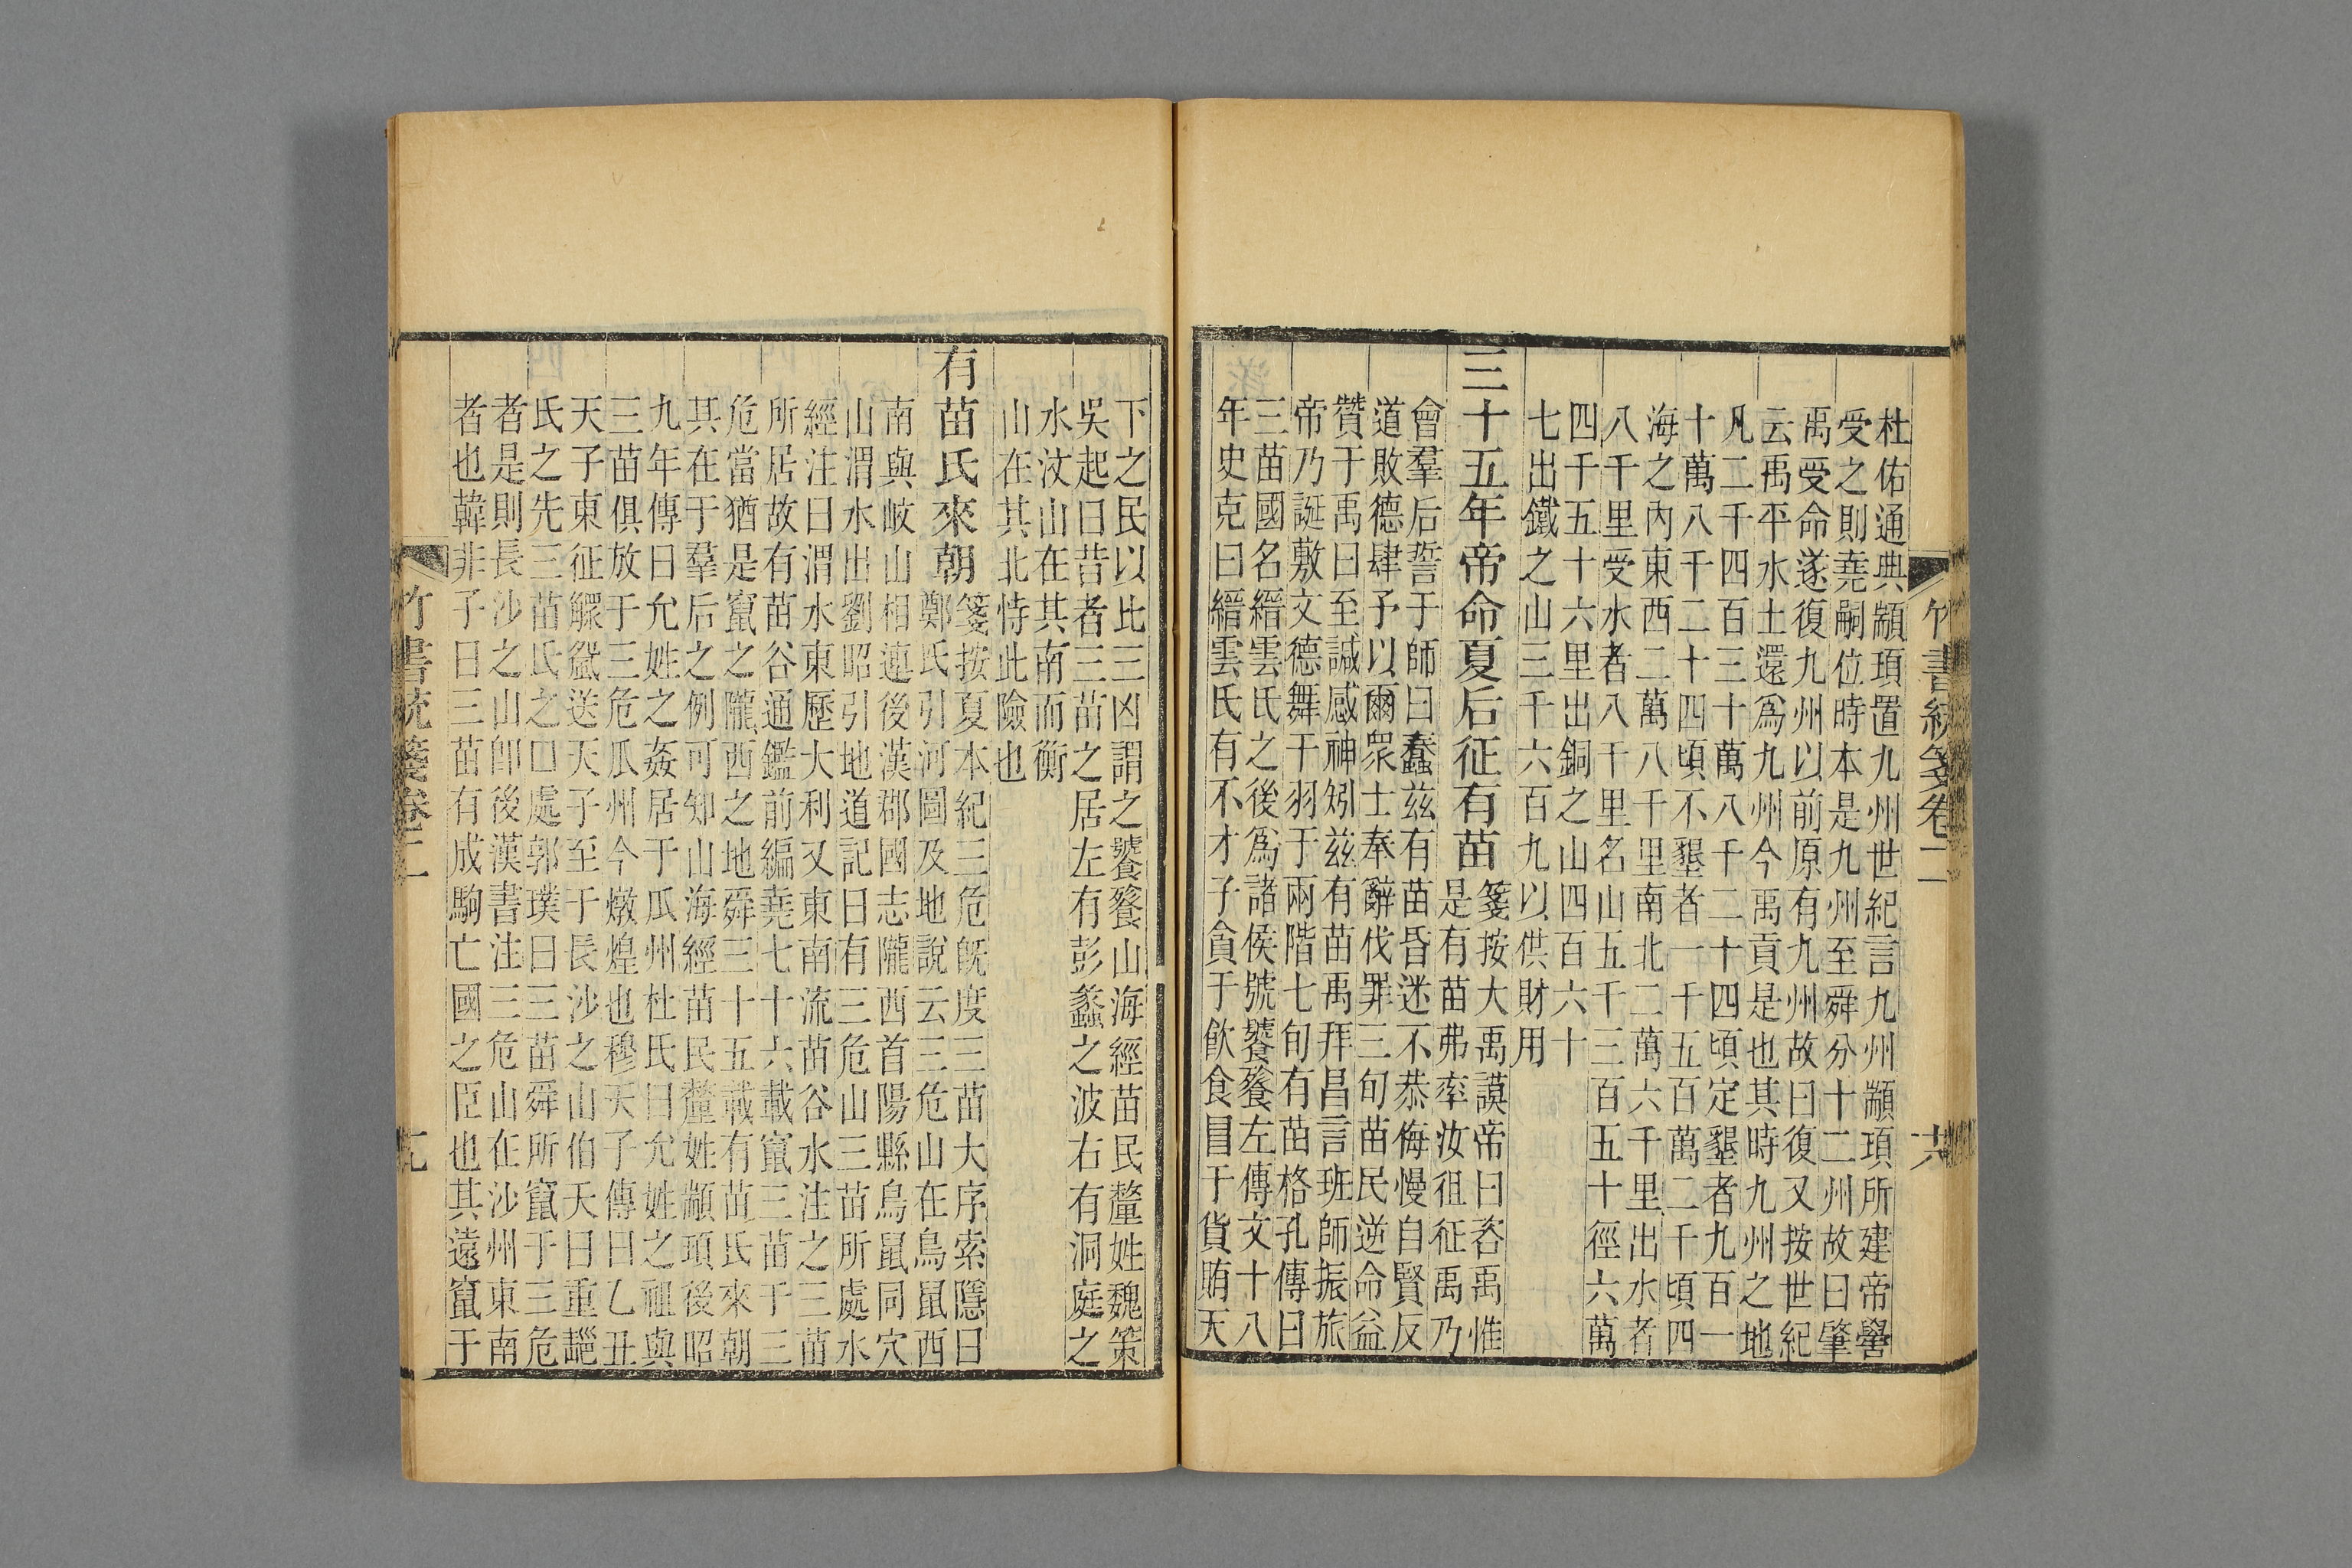 竹書統箋卷二
六
杜佑通典顓頊置九州世紀言九州顓頊所建帝嚳
受之則堯嗣位時本是九州至舜分十二州故曰肇
禹受命遂復九州以前原有九州故曰復又按世紀
云禹平水土還爲九州今禹貢是也其時九州之地
凡二千四百三十萬八千二十四頃定墾者九百一
十萬八千二十四頃不墾者一千五百萬二千頃四
海之內東西二萬八千里南北二萬六千里出水者
八千里受水者八千里名山五千三百五十徑六萬
四千五十六里出銅之山四百六十
七出鐵之山三千六百九以供財用
三十五年帝命夏后征有苗
箋按大禹謨帝曰咨禹惟
是有苗弗率汝徂征禹乃
會羣后誓于師曰蠢茲有苗昏迷不恭侮慢自賢反
道敗德肆予以爾眾士奉辭伐罪三旬苗民逆命益
贊于禹曰至諴感神矧茲有苗禹拜昌言班師振旅
帝乃誕敷文德舞干羽于兩階七旬有苗格孔傳曰
三苗國名縉雲氏之後爲諸侯號饕餮左傳文十八
年史克曰縉雲氏有不才子貪于飲食冒于貨賄天
下之民以比三凶謂之饕餮山海經苗民釐姓魏策
吳起曰昔者三苗之居左有彭蠡之波右有洞庭之
水汶山在其南而衡
山在其北恃此險也
有苗氏來朝
箋按夏本紀三危旣度三苗大序索隱曰
鄭氏引河圖及地說云三危山在鳥鼠西
南與岐山相連後漢郡國志隴西首陽縣鳥鼠同穴
山渭水出劉昭引地道記曰有三危山三苗所處水
經注曰渭水東歷大利又東南流苗谷水注之三苗
所居故有苗谷通鑑前編堯七十六載竄三苗于三
危當猶是竄之隴西之地舜三十五載有苗氏來朝
其在于羣后之例可知山海經苗民釐姓顓頊後昭
九年傳曰允姓之姦居于瓜州杜氏曰允姓之祖與
三苗俱放于三危瓜州今燉煌也穆天子傳曰乙丑
天子東征觶䚂送天子至于長沙之山伯夭曰重䣝
氏之先三苗氏之□處郭璞曰三苗舜所竄于三危
者是則長沙之山卽後漢書注三危山在沙州東南
者也韓非子曰三苗有成駒亡國之臣也其遠竄于
竹書統箋卷二